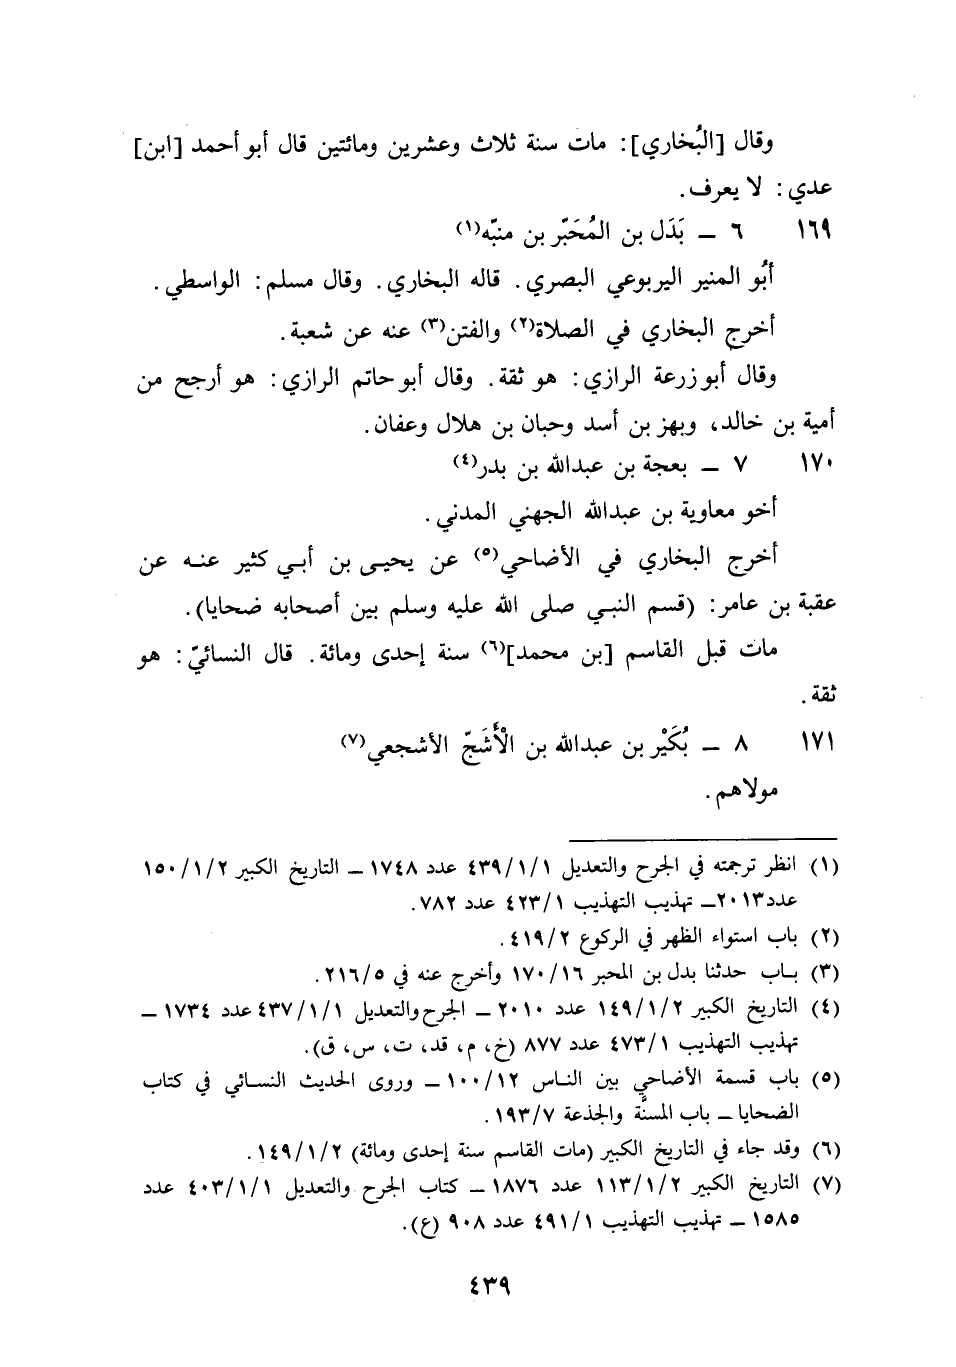 وقال [البُخاري]: مات سنة ثلاث وعشرين ومائتين قال أبو أحمد [ابن]
عدي: لا يعرف.
١٦٩ ٦ ــ بَدَل بن المُحَبّر بن منبّه(١)
أبُو المنير اليربوعي البصري. قاله البخاري. وقال مسلم: الواسطي.
أخرج البخاري في الصلاة(٢) والفتن(٣) عنه عن شعبة.
وقال أبو زرعة الرازي: هو ثقة. وقال أبو حاتم الرازي: هو أرجح من
أمية بن خالد، وبهز بن أسد وحبان بن هلال وعفان.
١٧٠ ٧ ــ بعجة بن عبدالله بن بدر(٤)
أخو معاوية بن عبدالله الجهني المدني.
أخرج البخاري في الأضاحي(٥) عن يحيى بن أبي كثير عنه عن
عقبة بن عامر: (قسم النبي صلى الله عليه وسلم بين أصحابه ضحايا).
مات قبل القاسم [بن محمد](٦) سنة إحدى ومائة. قال النسائيّ: هو
ثقة.
١٧١ ٨ ــ بُكَيْر بن عبدالله بن الْأَشَجّ الأشجعي(٧)
مولاهم.
(١) انظر ترجمته في الجرح والتعديل ٤٣٩/١/١ عدد ١٧٤٨ ــ التاريخ الكبير ١٥٠/١/٢
عدد ٢٠١٣ــ تهذيب التهذيب ٤٢٣/١ عدد ٧٨٢.
(٢) باب استواء الظهر في الركوع ٤١٩/٢.
(٣) باب حدثنا بدل بن المحبر ١٧٠/١٦ وأخرج عنه في ٢١٦/٥.
(٤) التاريخ الكبير ١٤٩/١/٢ عدد ٢٠١٠ ــ الجرح والتعديل ٤٣٧/١/١ عدد ١٧٣٤ ــ
تهذيب التهذيب ٤٧٣/١ عدد ٨٧٧ (خ، م، قد، ت، س، ق).
(٥) باب قسمة الأضاحي بين الناس ١٠٠/١٢ ــ وروى الحديث النسائي في كتاب
الضحايا ــ باب المسنَّة والجذعة ١٩٣/٧.
(٦) وقد جاء في التاريخ الكبير (مات القاسم سنة إحدى ومائة) ١٤٩/١/٢.
(٧) التاريخ الكبير ١١٣/١/٢ عدد ١٨٧٦ ــ كتاب الجرح والتعديل ٤٠٣/١/١ عدد
١٥٨٥ ــ تهذيب التهذيب ٤٩١/١ عدد ٩٠٨ (ع).
٤٣٩